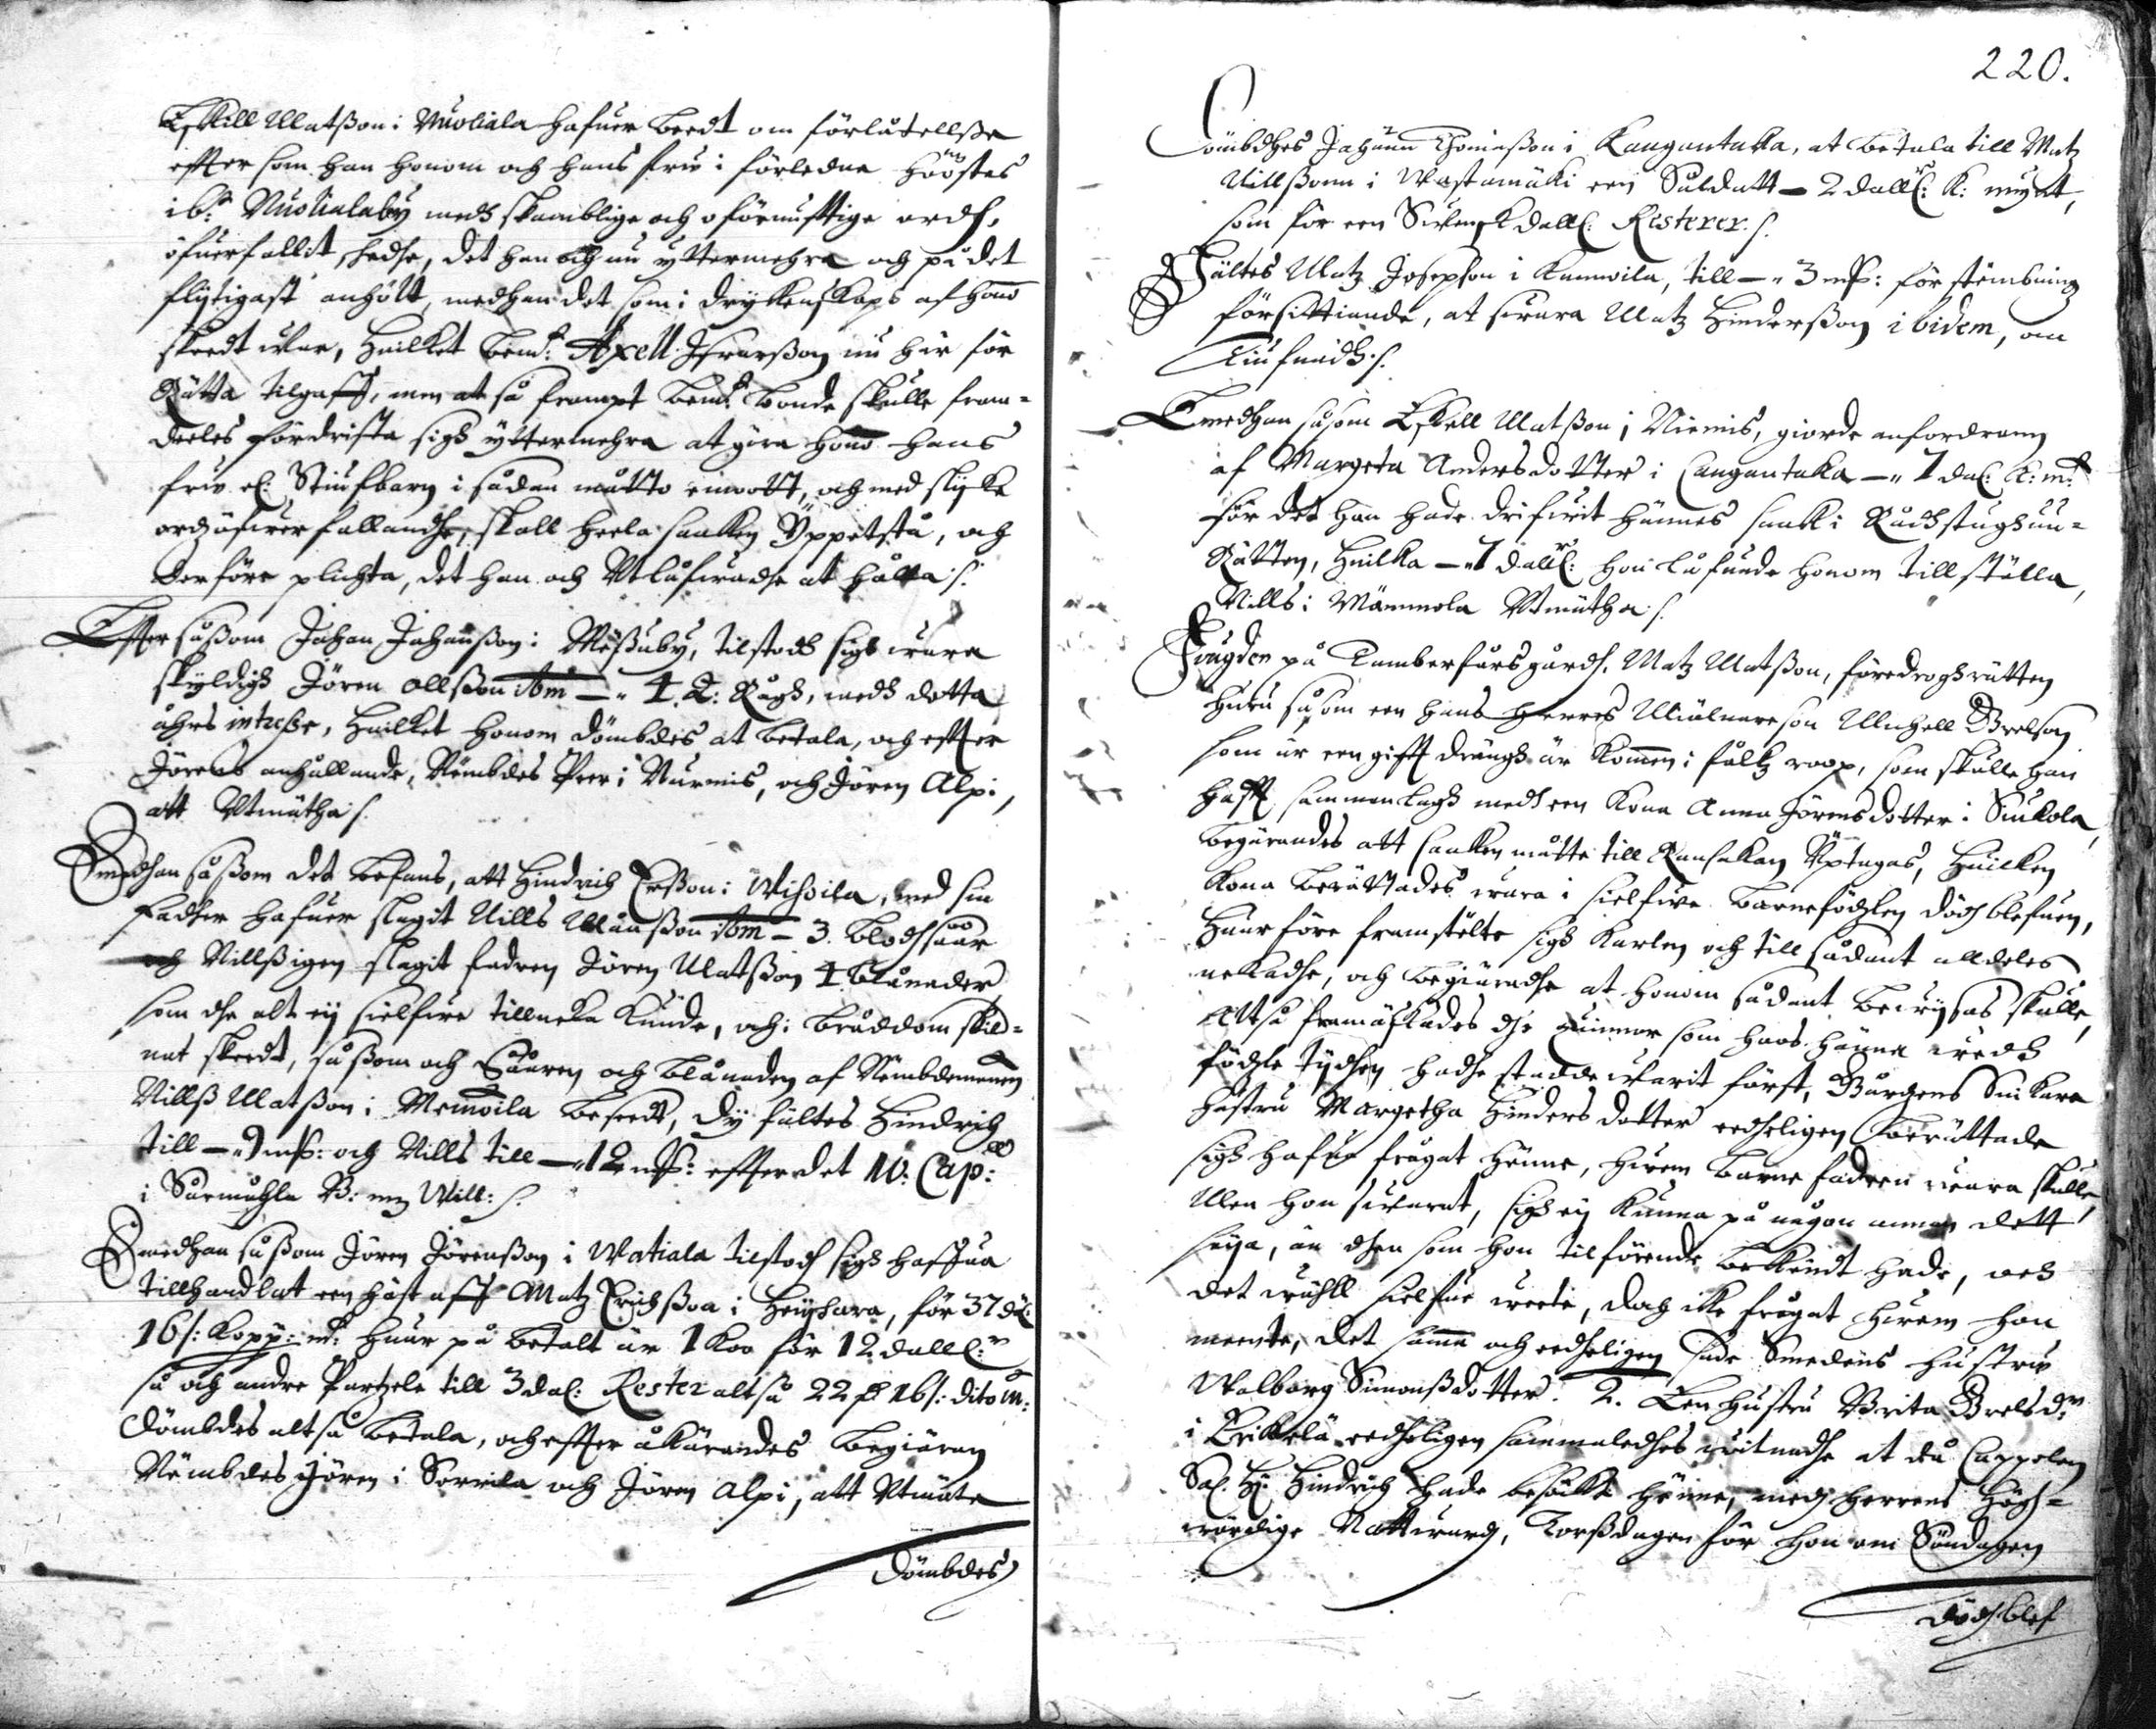 Eskill Matßon i Nuoliala hafuer beedt om förlåtellße
effter som han honom och hans fru i förledne Hööstes
ib.m Nuolialaby medh skamblige och oförnufftige ordh,
öfuerfallit hadhe, det han och nu yttermehra och på det
flijtigast anhölt, medhan det som i dryckenskap af hono
skeedt war, huilket bem:te Axell Ifwarßon nu här för
Rätta tilgaff, men at så frampt bem:te bonde skulle fram-
deeles fördrista sigh yttermehra at göra hono hans
fru el: Stiufbarn i sådan måtto emoott, och med slijke
ord öfwerfallandhe, skall heela saaken Uppetstå, och
derföre plichta, det han och Utlåfwadhe at hålla /.
Effter såßom Johan Johanßon i Meßuby, tilstodh sigh wara
skyldigh Jören Ollßon ibm — 4. Q: Rågh, medh detta
åhrs intreße, huilket honom dömbdes at betala, och effter
Jörens anhållande, Nembdes Peer i Nurmis, och Jören Alpi,
att Utmätha /.
Emedhan såßom det befans, att Hindrich Erßon i Wihoila, med sin
Fadher hafuer slagit Nills Månßon ibm — 3. blodhsåår
och Nillß igen slagit fadren Jören Matßon 4 blånader
som dhe alt eij sielfwe tillneka kunde, och i bråddom skil-
nat skeedt, såßom och Sååren och blånaden af Nembdemannen
Nillß Matßon i Memoila beseedt, dy fältes Hindrich
till — 9 mk: och Nills till — 12 mk: effter det 10: Cap:
i Såramåhla B: med Will: /.
Emedhan såßom Jören Jörenßon i Watiala tilstodh sigh haffua
tillhandlat een häst aff Matz Erichßon i Heijhara, för 37 dl:
16 /: Kopp: mt: huar på betalt är 1 Koo för 12 dall:r
så och andre Partzele till 3 dal: Rester altså 22 16 /: dito m:
Dömbdes altså betala, och effter åkärandes begiäran
Nembdes Jören i Sorrila och Jören Alpi, att Utmäta
Dömbdes
220.
Dömbdhes Johan Thomaßon i Kangantaka, at betala till Matz
Nillßonn i Wastamäki een Saldatt — 2 dall: K: mynt,
som för een Swensk dall: Resterer. /.
Fältes Matz Josephson i Kamvoila, till — 3 mk: för stembning
försittiande, at swara Matz Hinderßon ibidem, om
Tiufnadh /.
Emedhan såsom Eskell Matßon i Niemis, giorde anfordrann
af Margeta Andersdotter i Cangantaka — 7 dal: K: mt
för det han hade drifwit hännes saak i Rådhstughuu-
Rätten, huilka — 7 dall: hon låfuade honom tillställa,
Nills i Mämmola Utmätha /.
Fougden på Tamberfårs gårdh, Matz Matßon, föredrogh rätten
huru såsom een hans herres Miölnare son Michell Brelson
som är een gifft drängh är kommen i fålkz roop, som skulle han
hafft sammanlagh medh een Kona Anna Jörensdotter i Siukola,
begärandes att saaken måtte till Ransakan Uptagas, huilken
Kona berättades wara i sielfwe barnefödzlen dödh blefuen,
huarföre framstelte sigh Karlen och till sådant alldeles
nekadhe, och begiäradhe at honom sådant bewijsas skulle,
Altså framäskades dhe quinnor som hoos henne widh
födzle tijdhen hadhe stadde warit först, Burgens Smickare
hustru Margetha Hindersdotter eedheligen berättade
sigh hafua frågat henne, hwem barne fadren wara skulle,
Men hon swarat, sigh eij kunna på någon annan dett
säija, än dhen som hon tilförende bekendt hade, och
det wähll sielfue weete, doch icke frågat hwem hon
meente, det samma och eedheligen sade Smedens hustru
Walborg Simonßdotter. 2. Een hustru Brita Brelsd:r
i Erkkelä eedheligen sammaledhes witnadhe at då Cappelan
Sal. H: Hindrich hade besöökt henne, medh Herrens Högh-
wördige Nattward, Torßdagen för hon om Söndagen
dödh blef